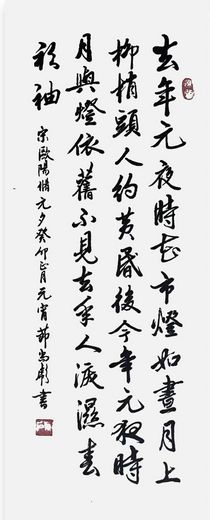 去年元夜時花市燈如晝月上
柳梢頭人約黄昏後今年元夜時
月與燈依舊不見去年人淚濕春
衫袖
宋歐陽脩元夕癸卯正月元宵節書